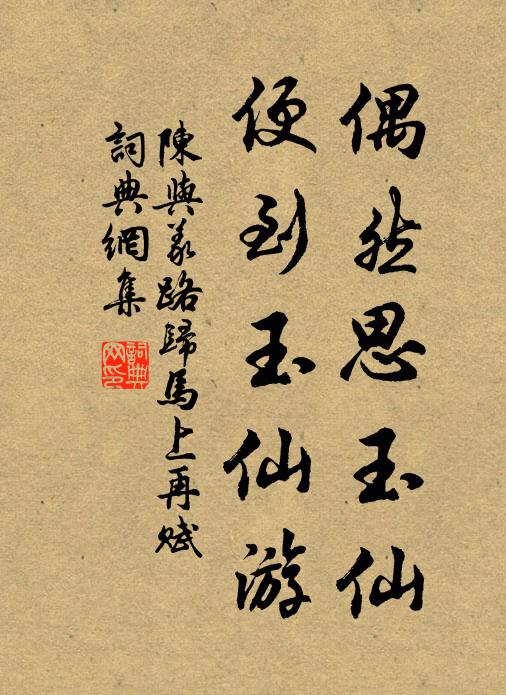 偶然思玉仙
便到玉仙游
陳與義路歸馬上再賦
詞典網集
詞典网印